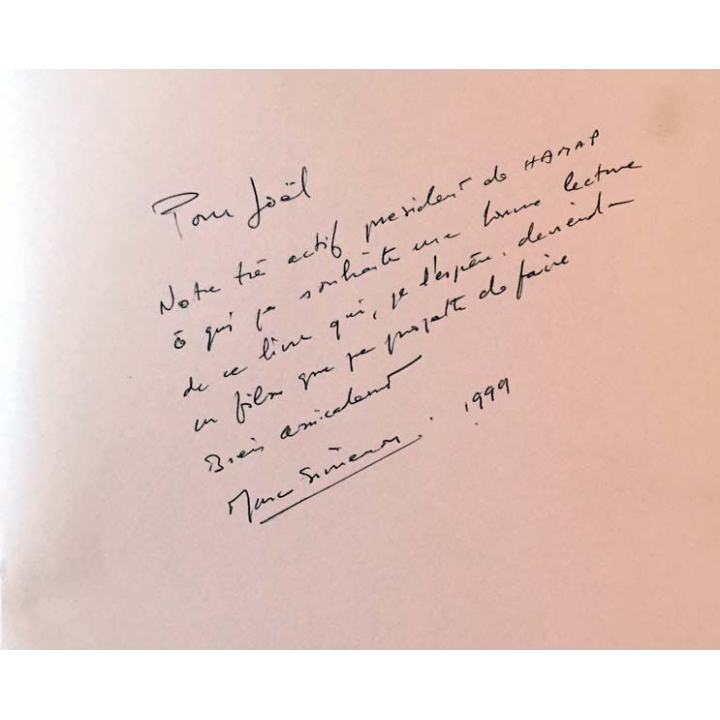 Pour Joël
Notre très actif président de HAMAP
à qui je souhaite une bonne lecture
de ce livre qui, je l'espère, deviendra
un film que je projette de faire
Bien amicalement
Marc Simenon. 1999